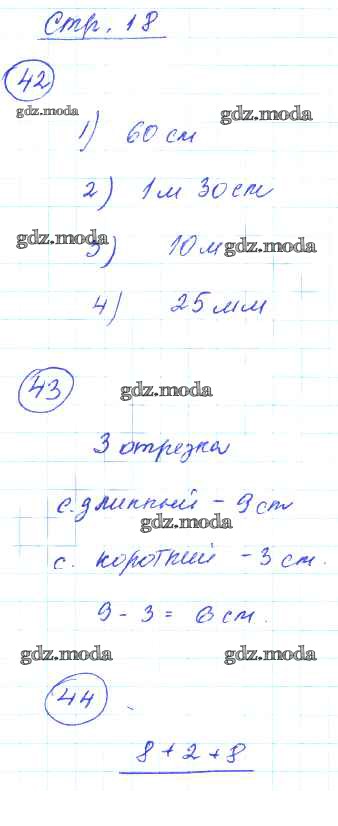 Стр. 18
42
gdz.moda
gdz.moda
1) 60 см
2) 1 м 30 см
gdz.moda
3) 10 м
gdz.moda
4) 25 мм
43
gdz.moda
3 отрезка
с. длинный - 9 см
gdz.moda
с. короткий - 3 см.
9 - 3 = 6 см.
gdz.moda
gdz.moda
44
8 + 2 + 8